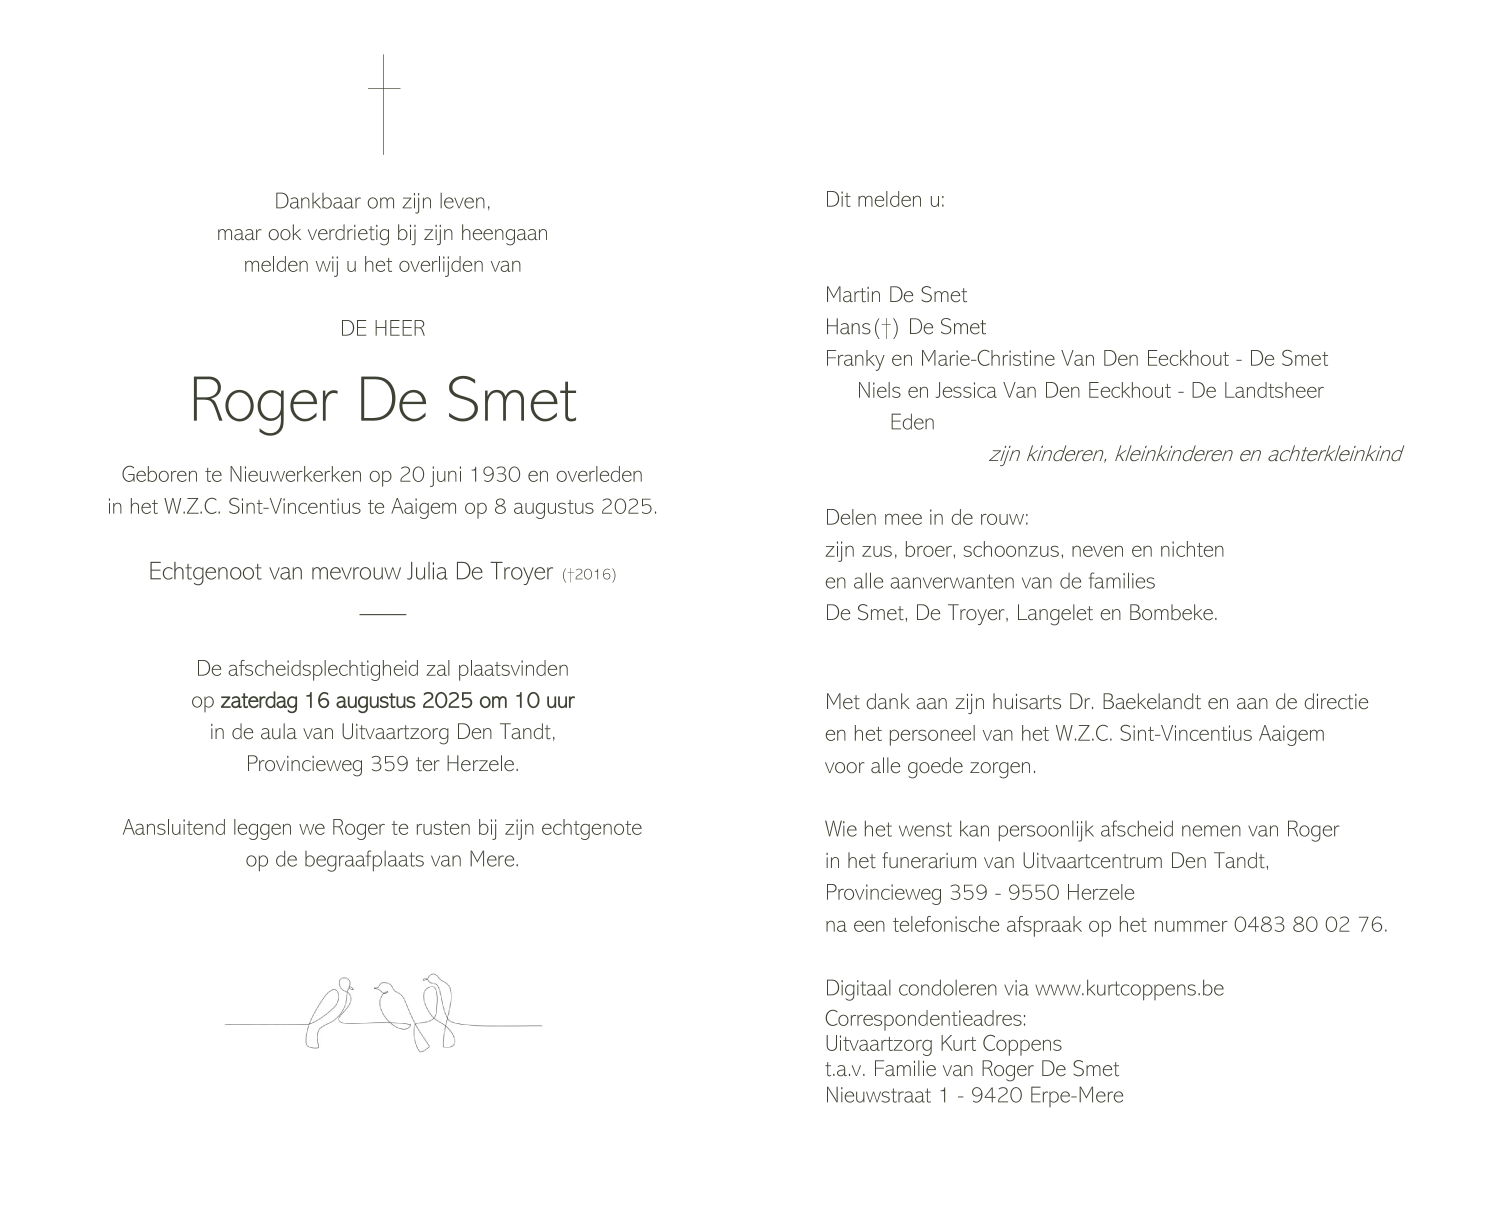 Dankbaar om zijn leven,
maar ook verdrietig bij zijn heengaan
melden wij u het overlijden van
DE HEER
Roger De Smet
Geboren te Nieuwerkerken op 20 juni 1930 en overleden
in het W.Z.C. Sint-Vincentius te Aaigem op 8 augustus 2025.
Echtgenoot van mevrouw Julia De Troyer (†2016)
De afscheidsplechtigheid zal plaatsvinden
op zaterdag 16 augustus 2025 om 10 uur
in de aula van Uitvaartzorg Den Tandt,
Provincieweg 359 ter Herzele.
Aansluitend leggen we Roger te rusten bij zijn echtgenote
op de begraafplaats van Mere.
Dit melden u:
Martin De Smet
Hans(†) De Smet
Franky en Marie-Christine Van Den Eeckhout - De Smet
Niels en Jessica Van Den Eeckhout - De Landtsheer
Eden
zijn kinderen, kleinkinderen en achterkleinkind
Delen mee in de rouw:
zijn zus, broer, schoonzus, neven en nichten
en alle aanverwanten van de families
De Smet, De Troyer, Langelet en Bombeke.
Met dank aan zijn huisarts Dr. Baekelandt en aan de directie
en het personeel van het W.Z.C. Sint-Vincentius Aaigem
voor alle goede zorgen.
Wie het wenst kan persoonlijk afscheid nemen van Roger
in het funerarium van Uitvaartcentrum Den Tandt,
Provincieweg 359 - 9550 Herzele
na een telefonische afspraak op het nummer 0483 80 02 76.
Digitaal condoleren via www.kurtcoppens.be
Correspondentieadres:
Uitvaartzorg Kurt Coppens
t.a.v. Familie van Roger De Smet
Nieuwstraat 1 - 9420 Erpe-Mere